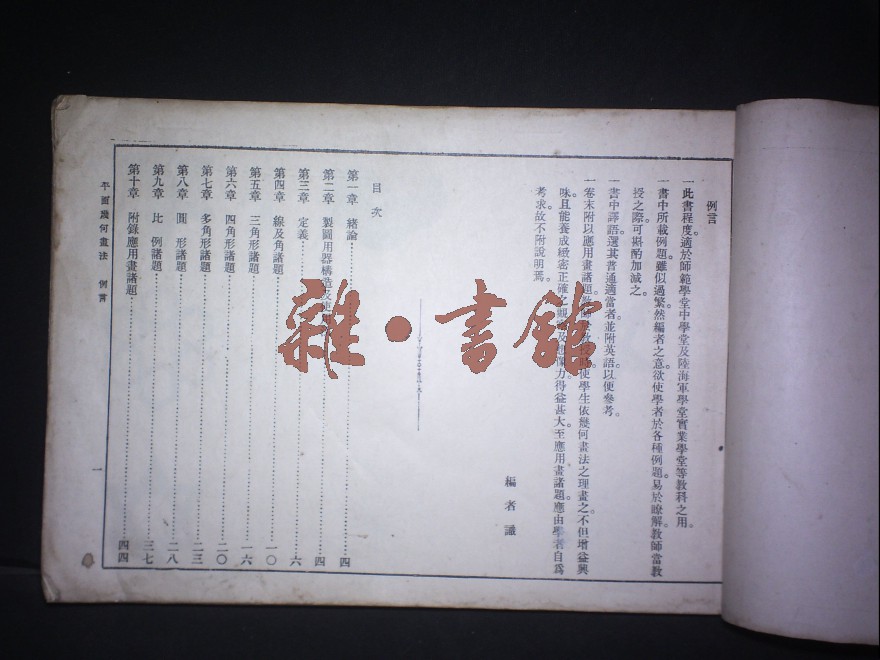 例言
一此書程度。適於師範學堂中學堂及陸海軍學堂實業學堂等教科之用。
一書中所載例題。雖似過繁。然編者之意。欲使學者於各種例題。易於瞭解。教師當教
授之際。可斟酌加減之。
一書中譯語。選其普通適當者。並附英語。以便參考。
一卷末附以應用畫諸題。使學生依幾何畫法之理畫之。不但增益興
味。且能養成緻密正確之觀力。得益甚大。至應用畫諸題。應由學者自爲
考求。故不附說明焉。
編者識
目次
第一章 緒論 四
第二章 製圖用器構造及使 四
第三章 定義 六
第四章 線及角諸題 一〇
第五章 三角形諸題 一六
第六章 四角形諸題 二〇
第七章 多角形諸題 二三
第八章 圓形諸題 二八
第九章 比例諸題 三七
第十章 附錄應用畫諸題 四四
平面幾何畫法 例言
一
雜·書館